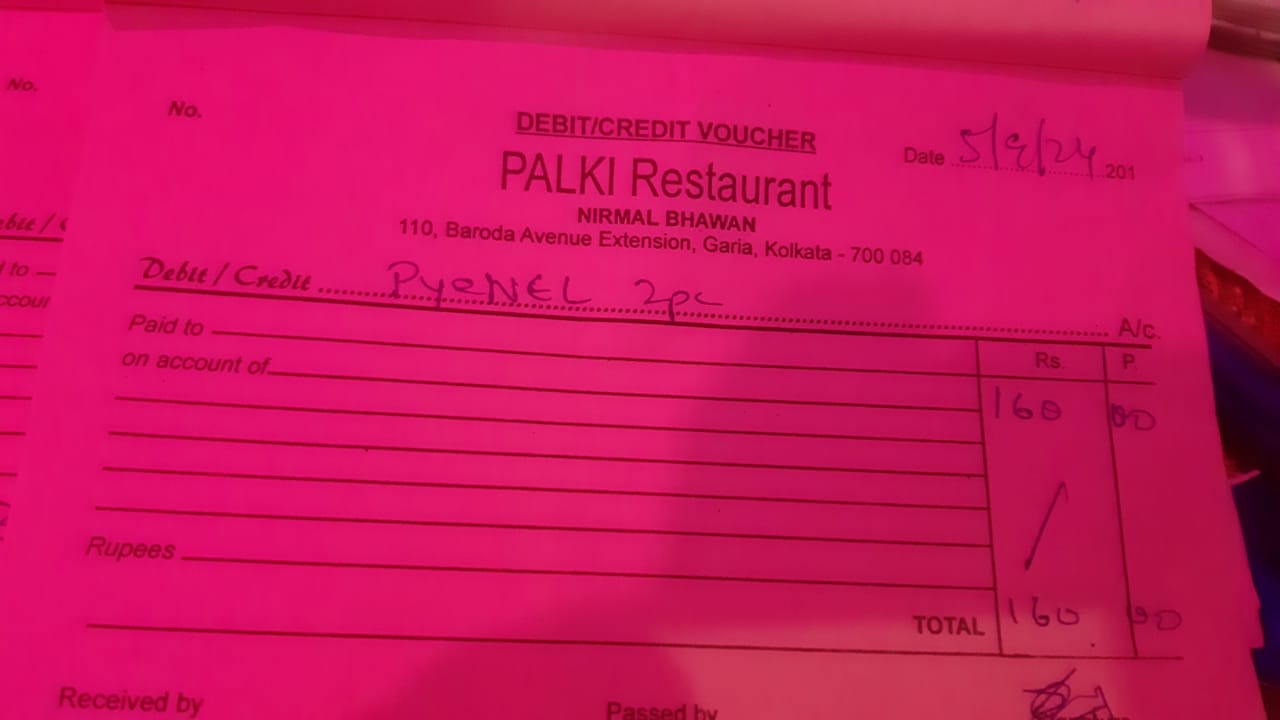 No.
No.
DEBIT/CREDIT VOUCHER
Date 5/9/24 201
PALKI Restaurant
NIRMAL BHAWAN
110, Baroda Avenue Extension, Garia, Kolkata - 700 084
Debit / Credit PyeNEL 2pc A/c.
Paid to
on account of
Rs. P.
160 00
Rupees
TOTAL 160 00
Received by Passed by